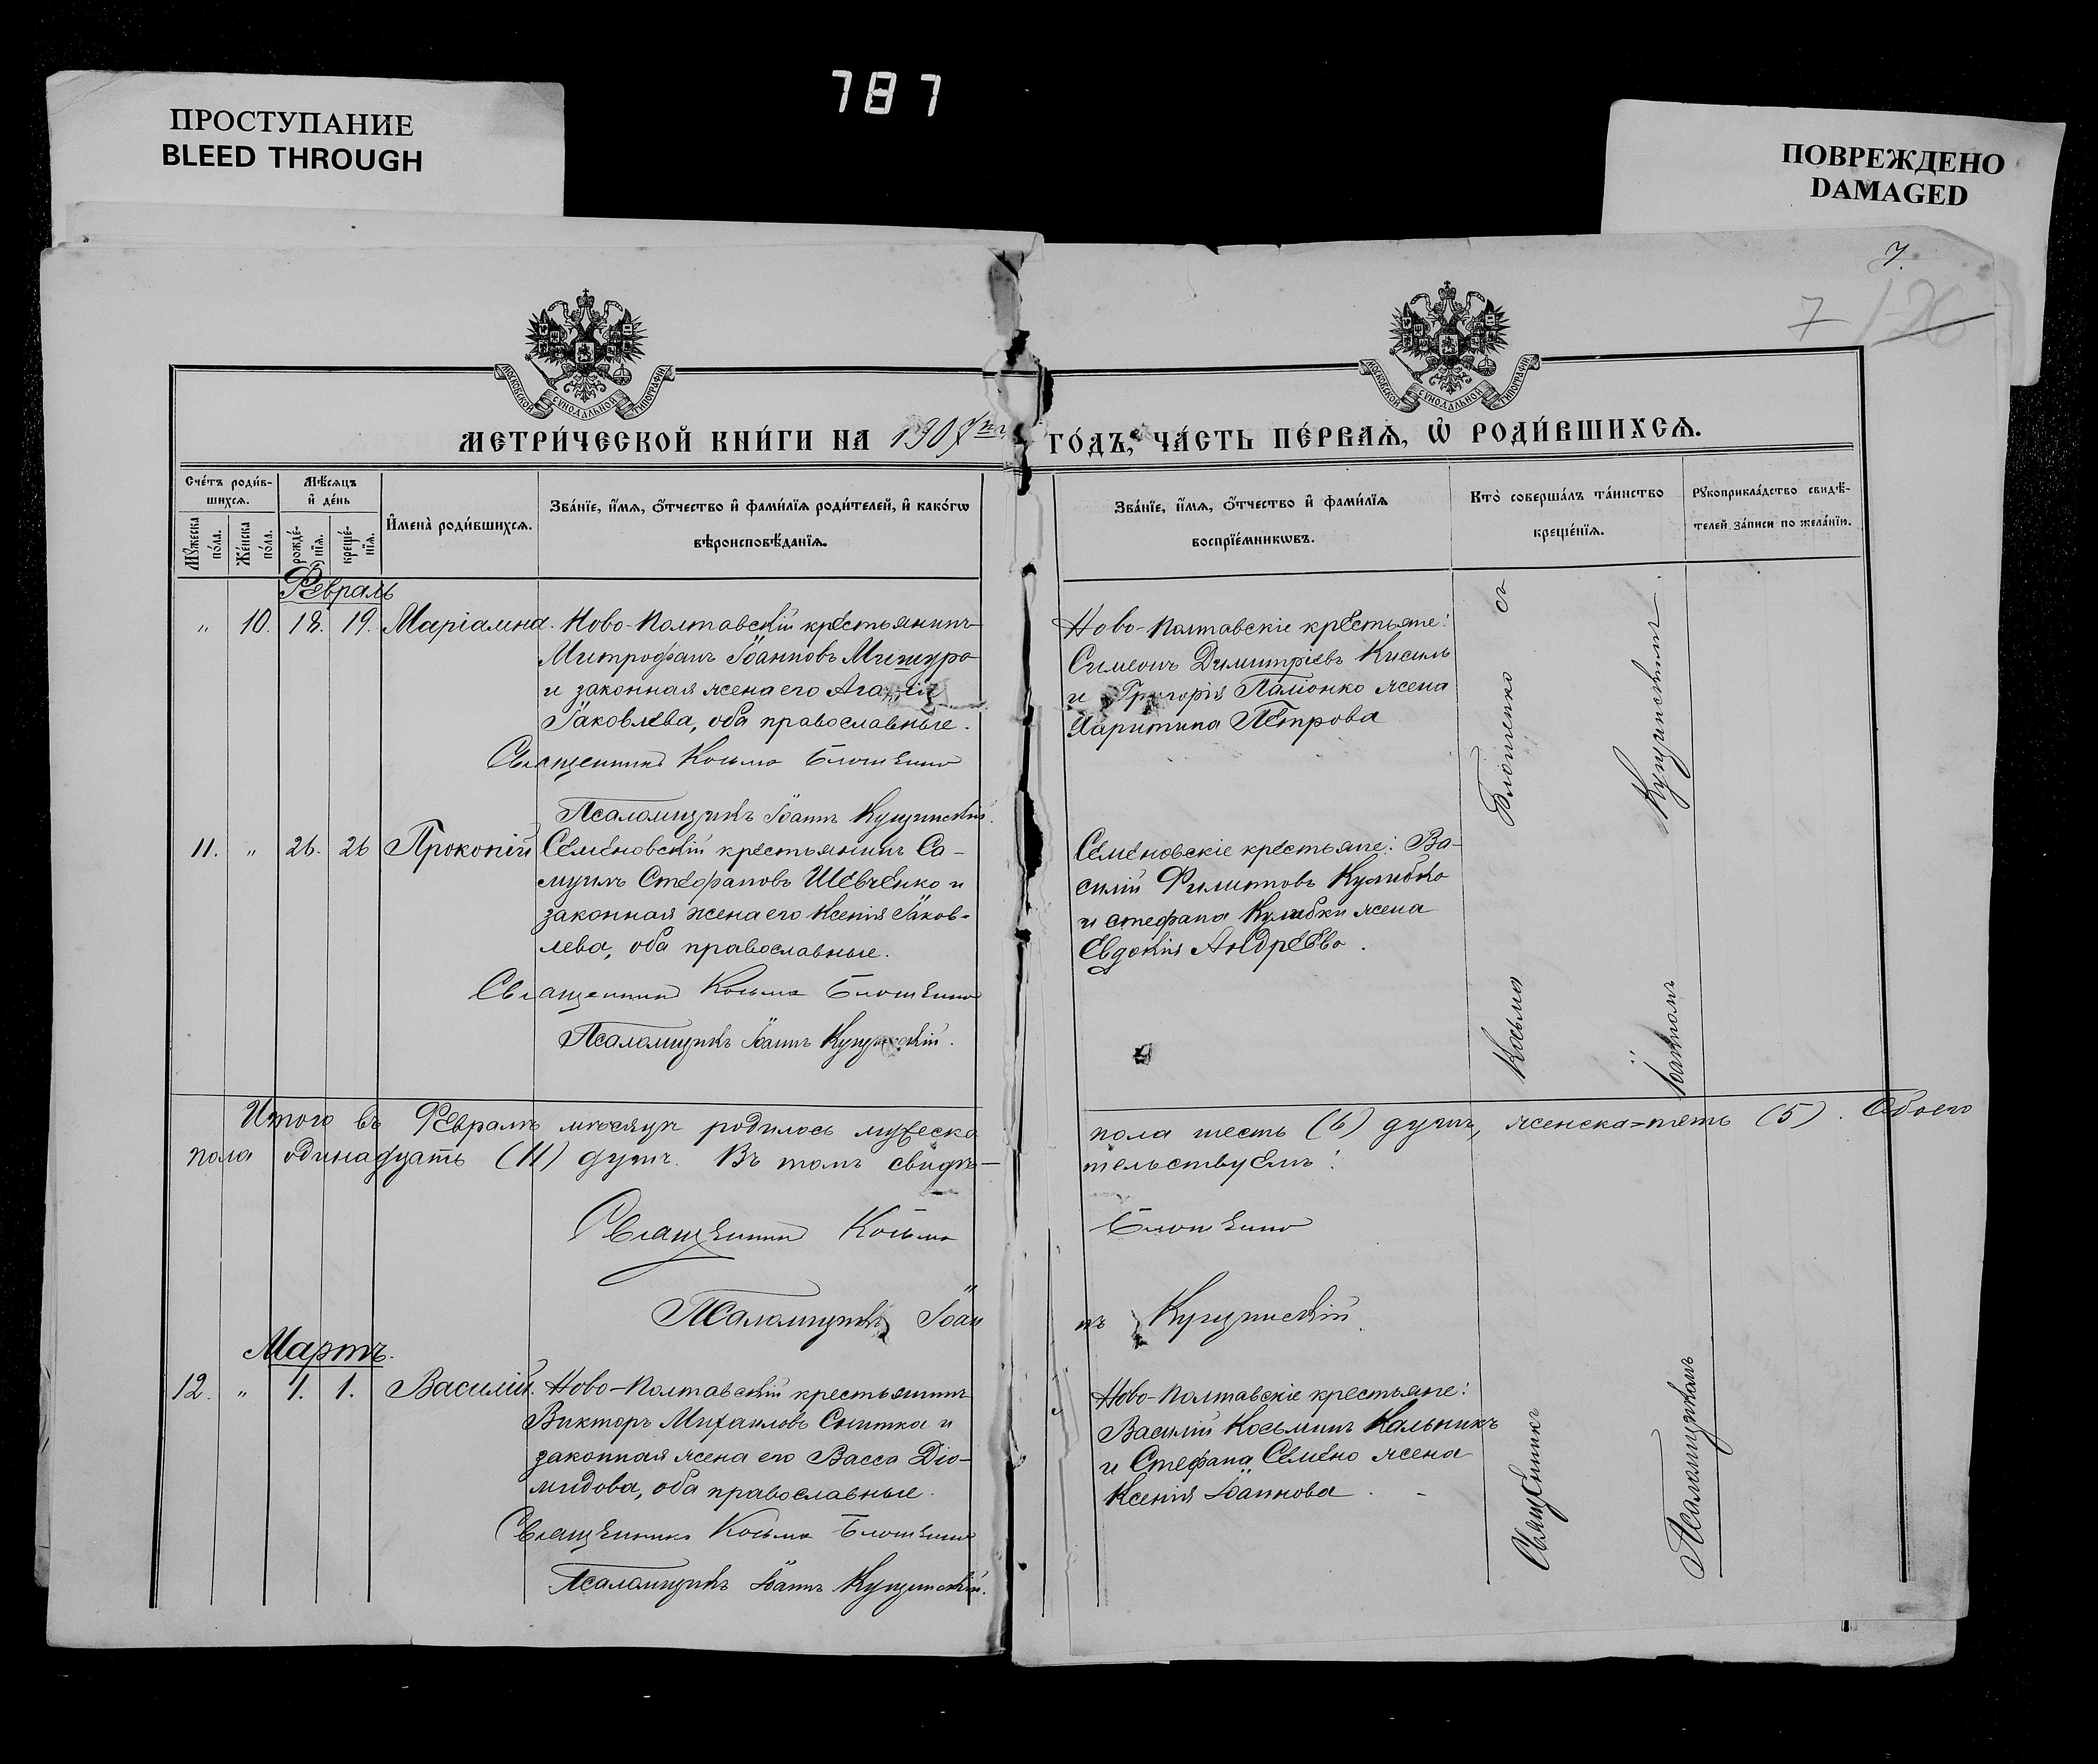 787
ПРОСТУПАНИЕ
BLEED THROUGH
ПОВРЕЖДЕНО
DAMAGED
7.
7 126
МОСКОВСКОЙ СѴНОДАЛЬНОЙ ТИПОГРАФІИ
МОСКОВСКОЙ СѴНОДАЛЬНОЙ ТИПОГРАФІИ
МЕТРИ́ЧЕСКОЙ КНИ́ГИ НА 1907 ГО́ДЪ, ЧА́СТЬ ПЕ́РВАѦ, Ѡ РОДИ́ВШИХСѦ.
Сче́тъ роди́в-
шихсѧ.
Мꙋ́жеска по́ла.
Же́нска по́ла.
Мѣ́сѧцъ
и҆ де́нь
рожде́-
нїѧ.
креще́-
нїѧ.
И҆мена̀ роди́вшихсѧ.
Зва́нїе, и҆́мѧ, ѻ҆́тчество и҆ фами́лїѧ роди́телей, и҆ како́гѡ
вѣроисповѣ́данїѧ.
Зва́нїе, и҆́мѧ, ѻ҆́тчество и҆ фами́лїѧ
воспрїе́мникѡвъ.
Кто̀ соверша́лъ та́инство
креще́нїѧ.
Рꙋкоприкла́дство свидѣ́-
телей за́писи по жела́нїю.
Февраль
„ 10. 18. 19. Маріамна. Ново-Полтавскій крестьянинъ
Митрофанъ Іоанновъ
и законная жена его
Іаковлева, оба православные.
Священникъ Косьма Блошенко
Псаломщикъ Іоаннъ Кущинскій.
Ново-Полтавскіе крестьяне:
Симеонъ Димитріевъ Кисиль
и Григорія жена
Харитина Петрова
11. „ 26. 26 Прокопій Семеновскій крестьянинъ Са-
муилъ Стефановъ Шевченко и
законная жена его Ксенія Іаков-
лева, оба православные.
Священникъ Косьма Блошенко
Псаломщикъ Іоаннъ Кущинскій.
Семеновскіе крестьяне: Ва-
силій Филипповъ Кулибко
и Стефана Кулибки жена
Евдокія Андреева.
Итого въ Февралѣ мѣсяцѣ родилось мужеска
пола шесть (6) душъ, женска=пять (5). Обоего
пола одинадцать (11) душъ. Въ томъ свидѣ-
тельствуемъ:
Священникъ Косьма Блошенко
Псаломщикъ Іоаннъ Кущинскій.
Мартъ.
12. „ 1. 1. Василій. Ново-Полтавскій крестьянинъ
Викторъ Михаиловъ Снитка и
законная жена его Васса Діо-
мидова, оба православные.
Священникъ Косьма Блошенко
Псаломщикъ Іоаннъ Кущинскій.
Ново-Полтавскіе крестьяне:
Василій Косьминъ Кальникъ
и Стефана Семено жена
Ксенія Іоаннова
Священникъ Косьма Блошенко съ
Псаломщикомъ Іоанномъ Кущинскимъ.